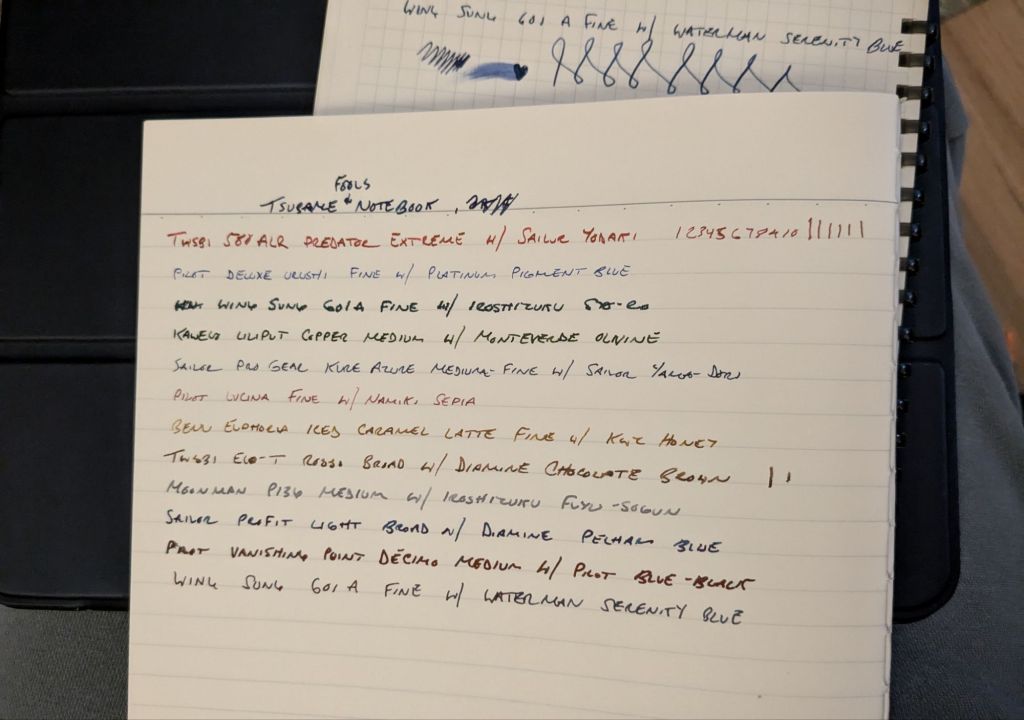 WING SUNG 601 A FINE W/ WATERMAN SERENITY BLUE
FOOLS
TSUBAME & NOTEBOOK,
TWSBI 580 ALR PREDATOR EXTREME W/ SAILOR YODAKI 12345678910
PILOT DELUXE URUSHI FINE W/ PLATINUM PIGMENT BLUE
WING SUNG 601A FINE W/ IROSHIZUKU SYO-RO
KAWECO LILIPUT COPPER MEDIUM W/ MONTEVERDE OLIVINE
SAILOR PRO GEAR KURE AZURE MEDIUM-FINE W/ SAILOR YAMA-DORI
PILOT LUCINA FINE W/ NAMIKI SEPIA
BENU EUPHORIA ICED CARAMEL LATTE FINE W/ KWZ HONEY
TWSBI ECO-T ROSSO BROAD W/ DIAMINE CHOCOLATE BROWN
MOONMAN P136 MEDIUM W/ IROSHIZUKU FUYU-SOGUN
SAILOR PROFIT LIGHT BROAD W/ DIAMINE PELHAM BLUE
PILOT VANISHING POINT DECIMO MEDIUM W/ PILOT BLUE-BLACK
WING SUNG 601 A FINE W/ WATERMAN SERENITY BLUE